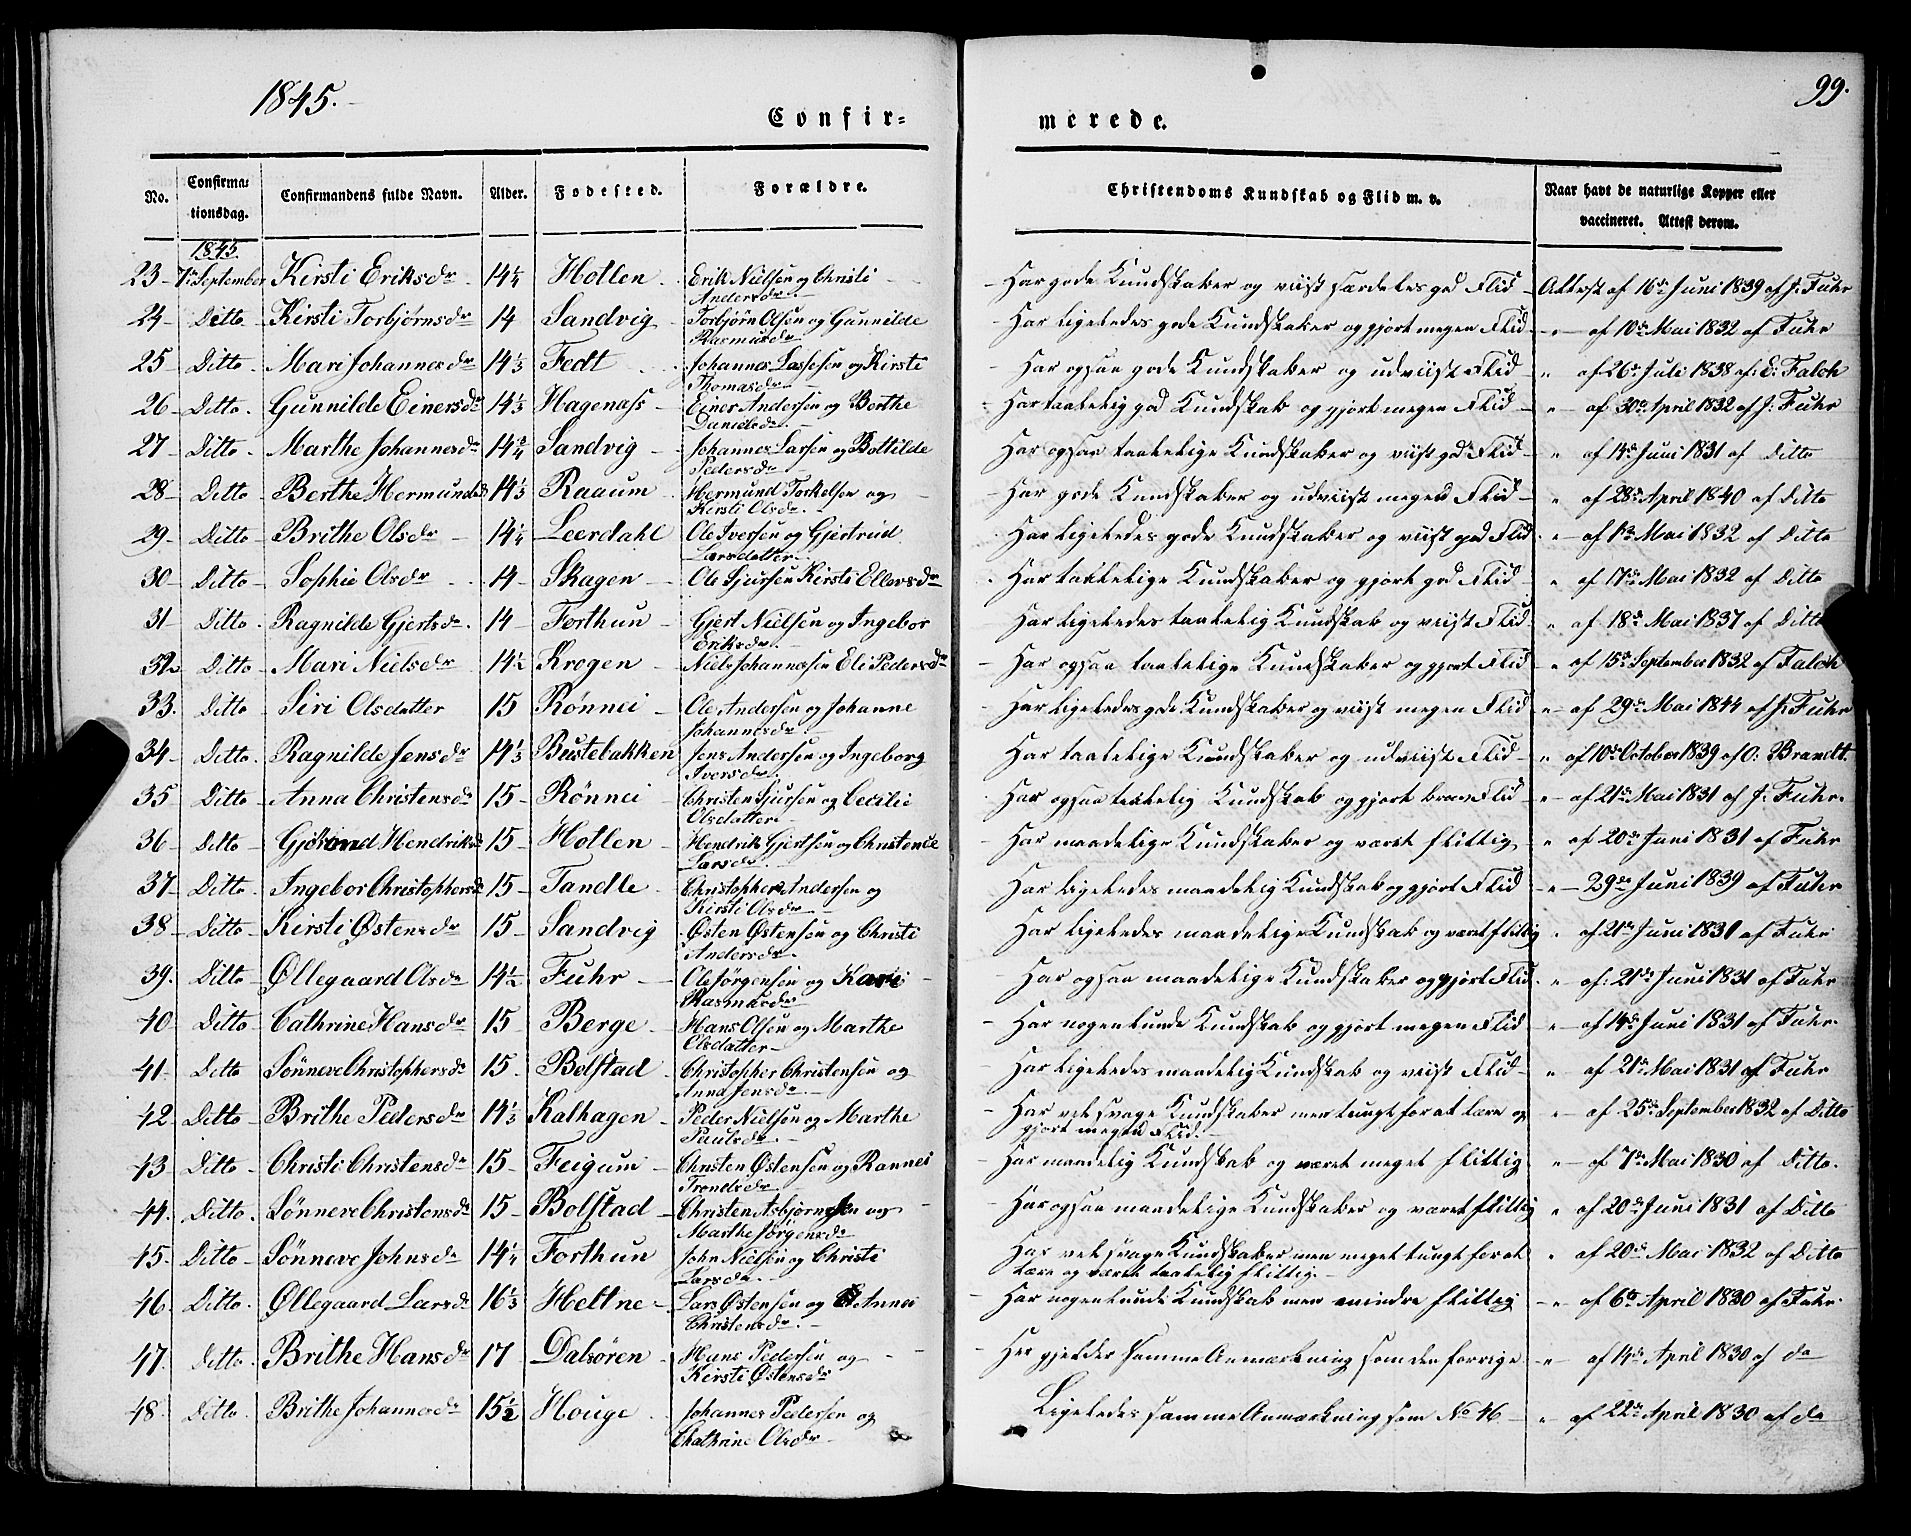 1845.
99.
Confir-
merede.
No.
Confirma-
tionsdag.
Confirmandens fulde Navn.
Alder.
Fødested.
Forældre.
Christendoms Kundskab og Flid m. v.
Naar havt de naturlige Kopper eller
vaccineret. Attest derom.
1845
23 7de September Kirsti Eriksdr 14 1/4 Hotlen Erik Nielsen og Christi Har gode Kundskaber og viist særdeles god Flid Attest af 16de Juni 1839 af J: Fuhr
Andersdr
24 Ditto Kirsti Torbjørnsdr 14 Sandvig Torbjørn Olsen og Gunnilde Har ligeledes gode Kundskaber og gjort megen Flid " af 10de Mai 1832 af Fuhr
Rasmusdr
25 Ditto Mari Johannesdr 14 1/3 Fedt Johannes Lassesen og Kirsti Har ogsaa gode Kundskaber og udviist Flid " af 26de Juli 1838 af: E: Falch
Thomasdr
26 Ditto Gunnilde Einersdr 14 1/3 Hagenass Einer Andersen og Berthe Har taalelig god Kundskab og gjort megen Flid " af 30de April 1832 af J: Fuhr
Danielsdr
27 Ditto Marthe Johannesdr Sandvig Johannes Larsen og Bottilde Har ogsaa taalelige Kundskaber og viist god Flid " af 14de Juni 1831 af Ditto
Pedersdr
28 Ditto Berthe Hermundsd 14 1/3 Raaum Hermund Torkelsen og Har gode Kundskaber og udviist megen Flid " af 28de April 1840 af Ditto
Kirsti Olsdr
29 Ditto Brithe Olsdr 14 1/4 Leerdahl Ole Iversen og Gjertrud Har ligeledes gode Kundskaber og viist god Flid " af 1ste Mai 1832 af Ditto
Larsdatter
30 Ditto Sophie Olsdr 14 Skagen Ole Sjursen Kirsti Ellersdr Har taalelige Kundskaber og gjort god Flid " af 17de Mai 1832 af Ditto
31 Ditto Ragnilde Gjertsdr 14 Forthun Gjert Nielsen og Ingebor Har ligeledes taalelig Kundskab og viist Flid " af 18de Mai 1837 af Ditto
Eriksdr
32 Ditto Mari Nielsdr 14 1/2 Krogen Niels Johannesen Eli Pedersdr Har ogsaa taalelige Kundskaber og gjort Flid " af 15de September 1832 af Falch
33. Ditto Siri Olsdatter 15 Rönnei Ole Andersen og Johanne Har ligeledes gode Kundskaber og viist megen Flid " af 29de Mai 1844 af J: Fuhr
Johannesdr
34 Ditto Ragnilde Jensdr 14 1/3 Bustebakken Jens Andersen og Ingeborg Har taalelige Kundskaber og udviist Flid " af 10de October 1839 af O: Brandt.
Iversdr
35 Ditto Anna Christensd 15 Rönnei Christen Sjursen og Cecilie Har ogsaa taalelig Kundskab og gjort brav Flid " af 21de Mai 1831 af J: Fuhr.
Olsdatter
36 Ditto Hendriksd 15 Hotlen Hendrik Gjertsen og Christense Har maadelige Kundskaber og været flittig " af 20de Juni 1831 af Fuhr
Larsdr
37 Ditto Ingebor Christophersd 15 Tandle Christopher Andersen og Har ligeledes maadelig Kundskab og gjort Flid " 29de Juni 1839 af Fuhr
Kirsti Olsdr
38 Ditto Kirsti Østensdr 15 Sandvig Østen Østensen og Christi Har ligeledes maadelige Kundskab og været flittig " af 21de Juni 1831 af Fuhr
Andersdr
39. Ditto Øllegaard Olsdr 14 1/2 Fuhr Ole Jörgensen og Kari Har ogsaa maadelige Kundskaber og gjort Flid " af: 21de Juni 1831 af Fuhr
Rasmusdr
40 Ditto Cathrine Hansdr 15 Berge Hans Olsen og Marthe Har nogenlunde Kundskab og gjort megen Flid " af 14de Juni 1831 af Fuhr.
Olsdatter
41 Ditto Sönneve Christophersd 15 Bolstad Christopher Christensen og Har ligeledes maadelig Kundskab og viist Flid " af 21de Mai 1831 af Fuhr
Anna Jensdr
42 Ditto Brithe Pedersdr 14 1/3 Kalhagen Peder Nielsen og Marthe Har vel svage Kundskaber men tungt for at lære og " af 25de September 1832 af Ditto
Paulsdr gjort megen Flid.
43 Ditto Christi Christensdr 15 Feigum Christen Østensen og Rannei Har maadelig Kundskab og været meget flittig " af 7de Mai 1830 af Ditto.
Trondsdr
44. Ditto. Sönneve Christensd 15 Bolstad Christen Asbjørnsen og Har ogsaa maadelige Kundskaber og været flittig " af 20de Juni 1831 af Ditto
Marthe Jörgensdr
45. Ditto Sönneve Johnsdr 14 1/4 Forthun John Nielsen og Christi Har vel svage Kundskaber men meget tungt for at " af 20de Mai 1832 af Ditto
Larsdr lære og været taalelig flittig.
46. Ditto. Øllegaard Larsd 16 1/3 Heltne Lars Østensen og Annei Har nogenlunde Kundskab men mindre flittig " af 6te April 1830 af Fuhr.
Christensdr
47. Ditto Brithe Hansdr 17 Dalsören Hans Pedersen og Her gjelder samme Anmærkning som den forrige " af 14de April 1830 af do
Kirsti Østensdr
48. Ditto. Brithe Johannesdr 15 1/2 Houge Johannes Pedersen og Ligeledes samme Anmærkning som No 46 " af 22de April 1830 af do
Chathrine Olsdr